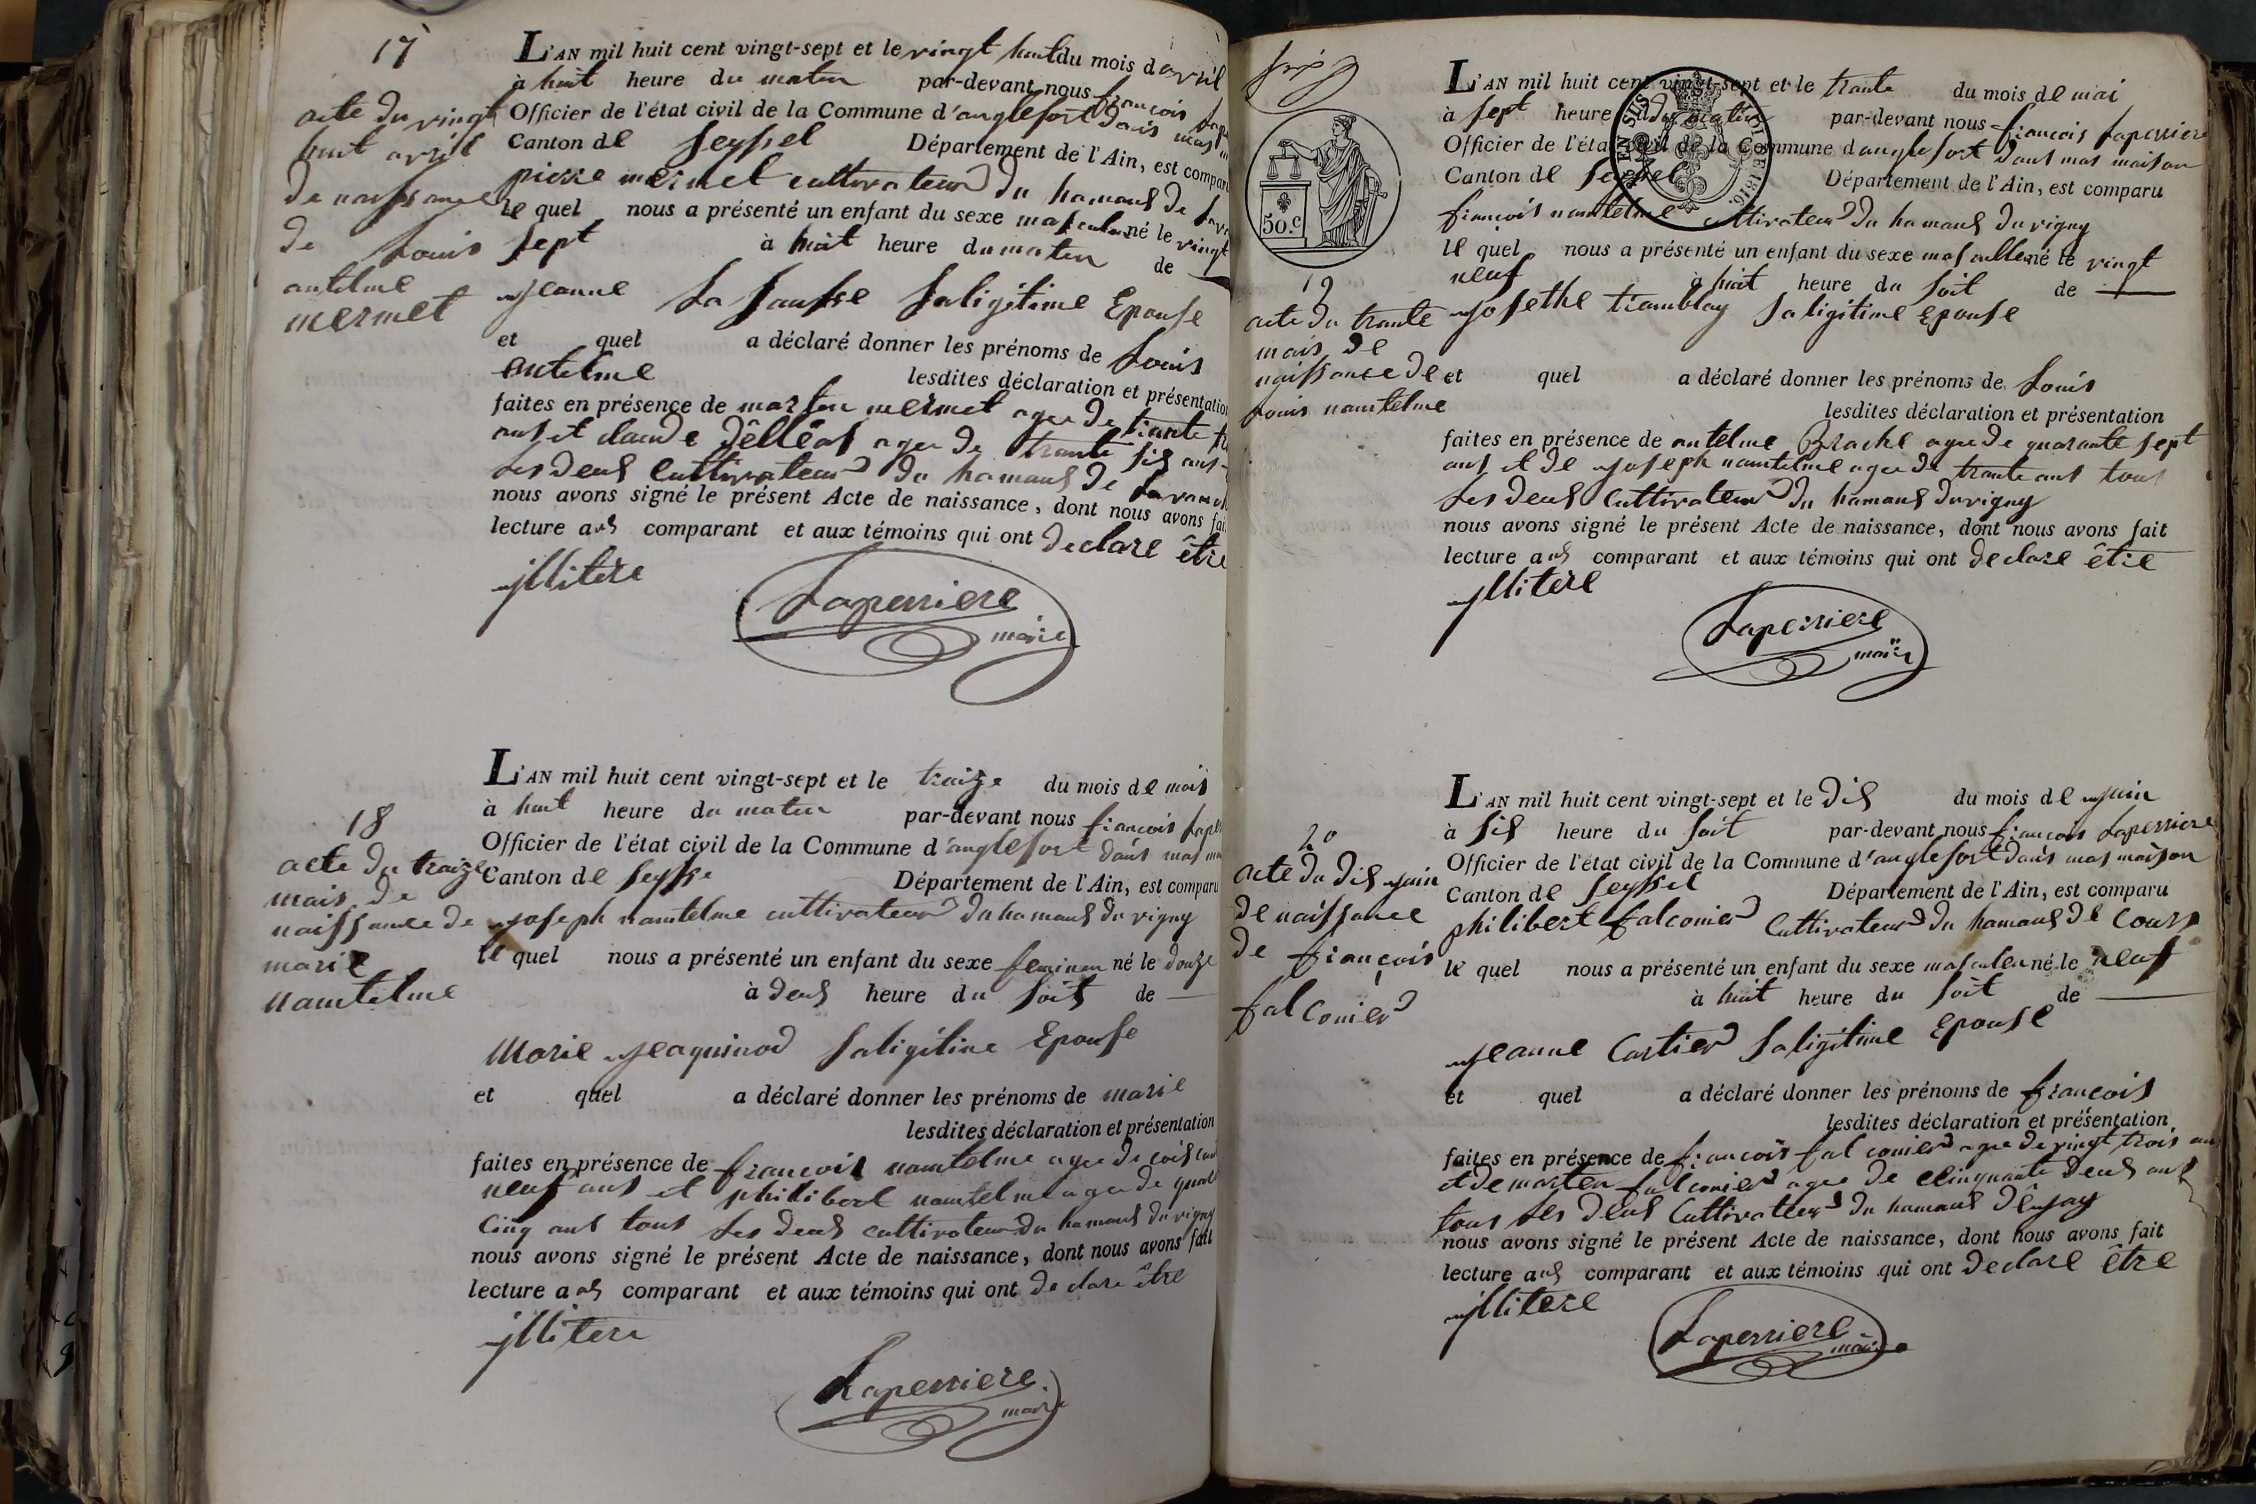 17
acte du vingt
huit avril
de naissance
de Louis
antelme
mermet
L'AN mil huit cent vingt-sept et le vingt huit du mois d avril
à huit heure du matin par-devant nous françois
Officier de l'état civil de la Commune d'anglefort dans mas
Canton de Seyssel Département de l'Ain, est comparu
pierre mermet cultivateur du hamaus de
le quel nous a présenté un enfant du sexe masculin né le vingt
sept à huit heure du matin de
jeanne La fausse saligitime Epouse
et quel a déclaré donner les prénoms de Louis
antelme lesdites déclaration et présentation
faites en présence de marten mermet agee de trante
ans et claude dêlléas agee de trante sis ans
les deus cultivateur du hamaus de
nous avons signé le présent Acte de naissance, dont nous avons fait
lecture aus comparant et aux témoins qui ont declare être
jllitere
Laperriere
maire
18
acte du traize
mais de
naissance de
marie
nantelme
L'AN mil huit cent vingt-sept et le traize du mois de mais
à huit heure du matin par-devant nous françois
Officier de l'état civil de la Commune d'anglefort dans mas
Canton de Seysse Département de l'Ain, est comparu
joseph nantelme cultivateur du hamaus du vigny
le quel nous a présenté un enfant du sexe feminen né le douze
à deus heure du soit de
Marie jeaquinod saligitine Epouse
et quel a déclaré donner les prénoms de marie
lesdites déclaration et présentation
faites en présence de françois nantelme agee de
neuf ans et philibert nantelme agee de
Cinq ans tous les deus cultivateur du hamaus du vigny
nous avons signé le présent Acte de naissance, dont nous avons fait
lecture aus comparant et aux témoins qui ont declare être
jllitere
Laperriere
maire
50.C
19
acte du trante
mais de
naissance de
Louis nantelme
L'AN mil huit cent vingt-sept et le trante du mois de mai
à sept heure du matin par-devant nous françois Laperriere
Officier de l'état civil de la Commune d anglefort dans mas maison
Canton de Seyssel Département de l'Ain, est comparu
françois nantelme cultivateur du hamaus du vigny
le quel nous a présenté un enfant du sexe masculle né le vingt
neuf à huit heure du soit de
josethe tramblay saligitime epouse
et quel a déclaré donner les prénoms de Louis
lesdites déclaration et présentation
faites en présence de antelme Brache agee de quarante sept
ans et de joseph nantelme agee de trante ans tous
les deus cultivateur du hamaus du vigny
nous avons signé le présent Acte de naissance, dont nous avons fait
lecture aus comparant et aux témoins qui ont declare être
jllitere
Laperriere
maire
20
acte du dis juin
de naissance
de françois
falconier
L'AN mil huit cent vingt-sept et le dis du mois de juin
à sis heure du soit par-devant nous françois Laperriere
Officier de l'état civil de la Commune d'anglefort dans mas maison
Canton de Seyssel Département de l'Ain, est comparu
philibert falconier Cultivateur du hamaus de cours
le quel nous a présenté un enfant du sexe masculen né le neuf
à huit heure du soit de
jeanne Cartier saligitime Epouse
et quel a déclaré donner les prénoms de françois
lesdites déclaration et présentation
faites en présence de françois falconier agee de vingt trois ans
et de marten falconier agee de cinquante deus ans
tous les deus Cultivateur du hamaus
nous avons signé le présent Acte de naissance, dont nous avons fait
lecture aus comparant et aux témoins qui ont declare être
jllitere
Laperriere
maire